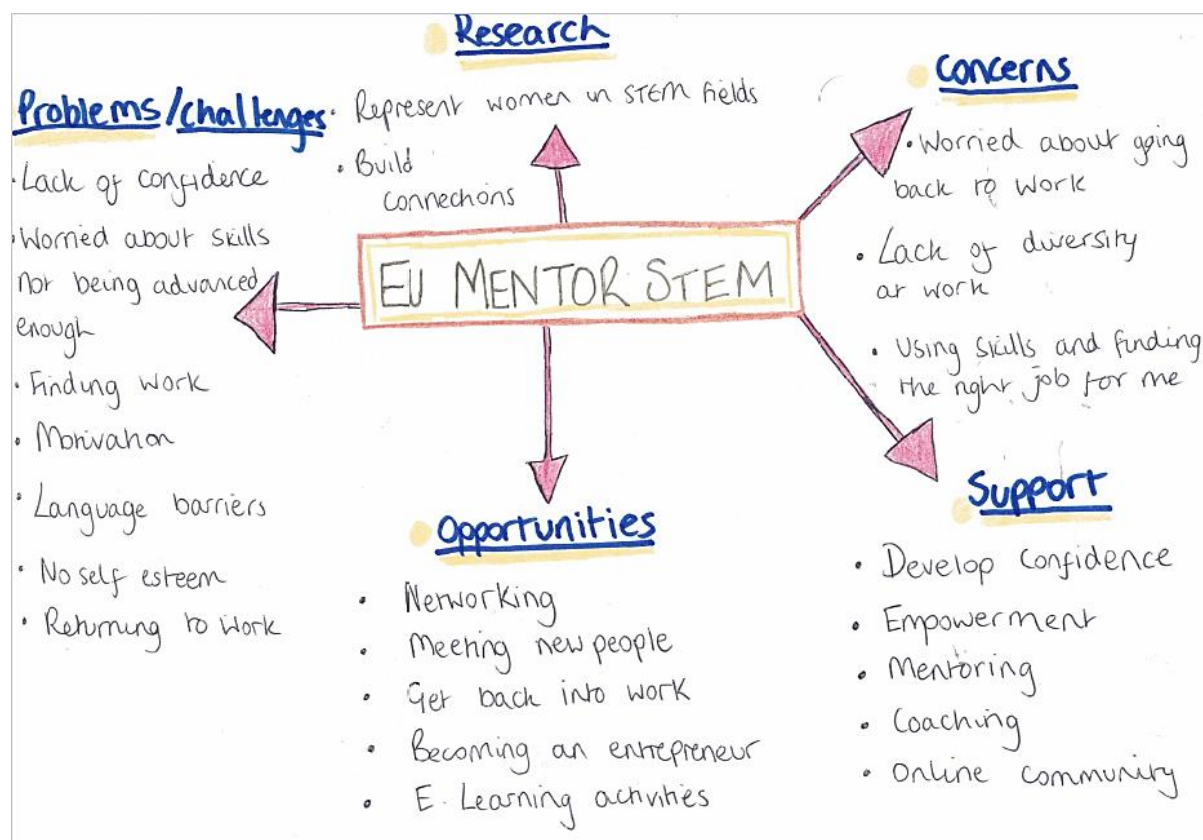 Research
• Represent women in STEM fields
• Build
connections
Problems/challenges
• Lack of confidence
• Worried about skills
not being advanced
enough
• Finding work
• Motivation
• Language barriers
• No self esteem
• Returning to work
EU MENTOR STEM
Concerns
• Worried about going
back to work
• Lack of diversity
at work
• Using skills and finding
the right job for me
Opportunities
• Networking
• Meeting new people
• Get back into work
• Becoming an entrepreneur
• E. Learning activities
Support
• Develop confidence
• Empowerment
• Mentoring
• Coaching
• Online community